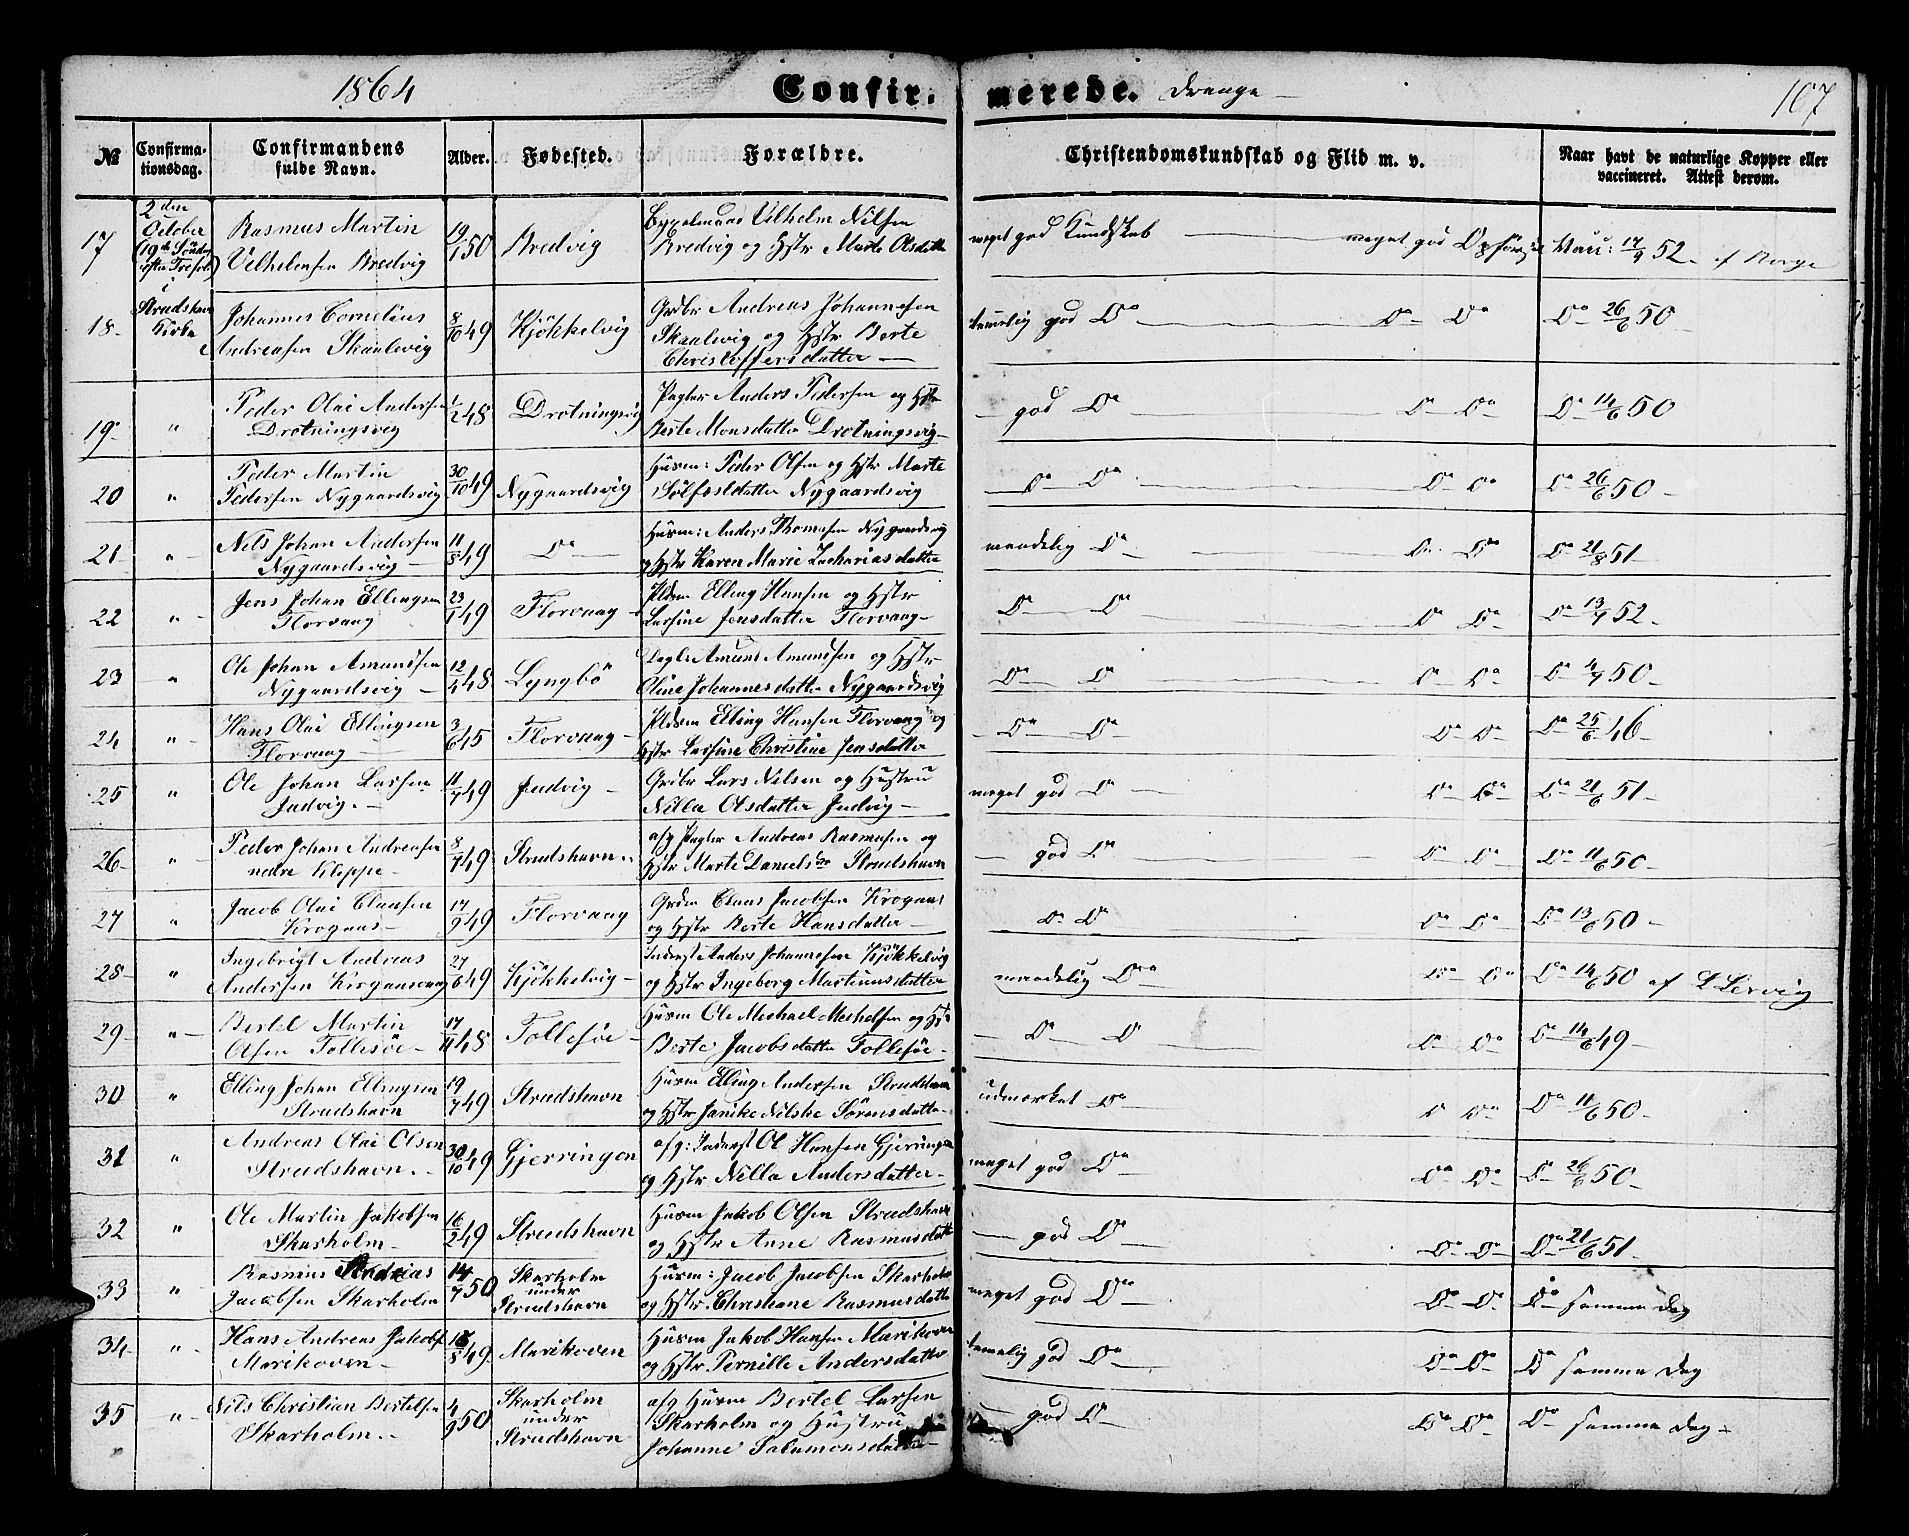 1864 Confirmerede. Drenge 107
№ Confirmationsdag. Confirmandens fulde Navn. Alder. Fødested. Forældre. Christendomskundskab og Flid m. v. Naar havt de naturlige Kopper eller vaccineret. Attest derom.
17 2den October (19de Søndag efter Trefold) i Strudshavn Kirke Rasmus Martin Vilhelmsen Bredvig 19/1 50 Bredvig Vilhelm Nilsen Bredvig og Hstr Marte Olsdatter meget god Kundskab meget god Opførsel Vacc: 17/9 52 af Berge
18 Johannes Cornelius Andreasen Skaalevig 8/10 49 Kjökkelvig Grdbr Andreas Johannesen Skaalevig og Hstr Berte Christoffersdatter temelig god Do Do Do Do 26/6 50
19 " Peder Olai Andersen Drotningsvig 1/2 48 Drotningsvig Pagter Anders Pedersen og Hstr Berte Monsdatter Drotningsvig god Do Do Do Do 14/6 50
20 " Peder Martin Pedersen Nygaardsvig 30/10 49 Nygaardsvig Husm: Peder Olsen og Hstr Marte Sølfæstdatter Nygaardsvig Do Do Do Do Do 26/6 50
21 " Nels Johan Andersen Nygaardsvig 11/8 49 Do Husm: Anders Thomesen Nygaardsvig og Hstr Karen Marie Zachariasdatter maadelig Do Do Do Do 21/8 51
22 " Jens Johan Ellingsen Florvaag 23/1 49 Florvaag Pldsm Elling Hansen og Hstr Larsine Jensdatter Florvaag Do Do Do Do Do 13/7 52
23 " Ole Johan Amundsen Nygaardsvig 12/4 48 Lyngbö Dagl: Amund Amundsen og Hstr Oline Johannesdatter Nygaardsvig Do Do Do Do Do 4/7 50
24 " Hans Olai Ellingsen Florvaag 3/6 45 Florvaag Pldsm Elling Hansen Florvaag og Hstr Larsine Christine Jensdatter Do Do Do Do Do 25/6 46
25 " Ole Johan Larsen Judvig 11/7 49 Judvig Grdbr Lars Nilsen og Hustru Nilla Olsdatter Judvig meget god Do Do Do Do 21/6 51
26 " Peder Johan Andreasen nedre Kleppe 8/7 49 Strudshavn afg Pagter Andreas Rasmusen og Hstr Marte Danielsdtr Strudshavn god Do Do Do Do 11/6 50
27 " Jacob Olai Clausen Krogaas 17/9 49 Florvaag Grdm Claus Jacobsen Krogaas og Hstr Berte Hansdatter Do Do Do Do Do 13/6 50
28 " Ingebrigt Andreas Andersen Krogaasvaag 27/6 49 Kjökkelvig Inderst Anders Johannesen Kjökkelvig og Hstr Ingeborg Martinusdatter maadelig Do Do Do Do 14/6 50 af L Lervig
29 " Bertel Martin Olsen Tollesöe 17/11 48 Tollesöe Husm Ole Michael Mechelsen og Hstr Berte Jacobsdatter Tollesöe Do Do Do Do Do 14/6 49
30 " Elling Johan Ellingsen Strudshavn 19/7 49 Strudshavn Husm Elling Andersen Strudshavn og Hstr Janike Nilske Sörensdatter udmærket Do Do Do Do 11/6 50
31 " Andreas Olai Olsen Strudshavn 30/10 49 Gjerringen afg: Inderst Ol Hansen Gjerringen og Hstr Nilla Andersdatter meget god Do Do Do Do 26/6 50
32 " Ole Martin Jakobsen Skarholm 16/2 49 Strudshavn Husm Jakob Olsen Strudshavn og Hstr Anne Rasmusdatter god Do Do Do Do 21/6 51
33 " Rasmus Andreas Jacobsen Skarholm 14/7 50 Skarholm under Strudshavn Husm: Jacob Jacobsen Skarholm og Hstr Christiane Rasmusdatter meget god Do Do Do Do samme Dag
34 " Hans Andreas Jakobs. Marikoven 18/8 49 Marikoven Husm Jakob Hansen Marikoven og Hstr Pernille Andersdatter temelig god Do Do Do Do samme Dag
35 " Nils Christian Bertelsen Skarholm 4/9 50 Skarholm under Strudshavn afg Husm Bertel Larsen Skarholm og Hustru Johanne Salamonsdatter god Do Do Do Do samme Dag